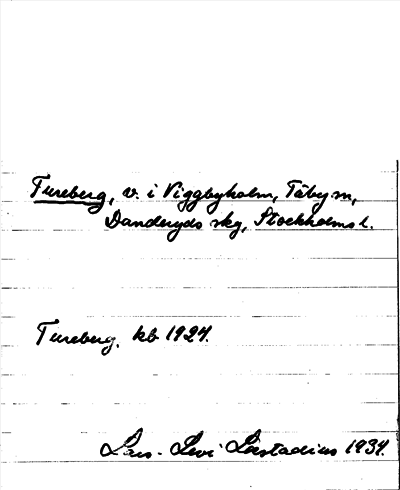 Tureberg, v. i Viggbyholm, Täby sn,
Danderyds skg, Stockholms l.
Tureberg. kb 1927.
Lars-Levi Læstadius 1934.